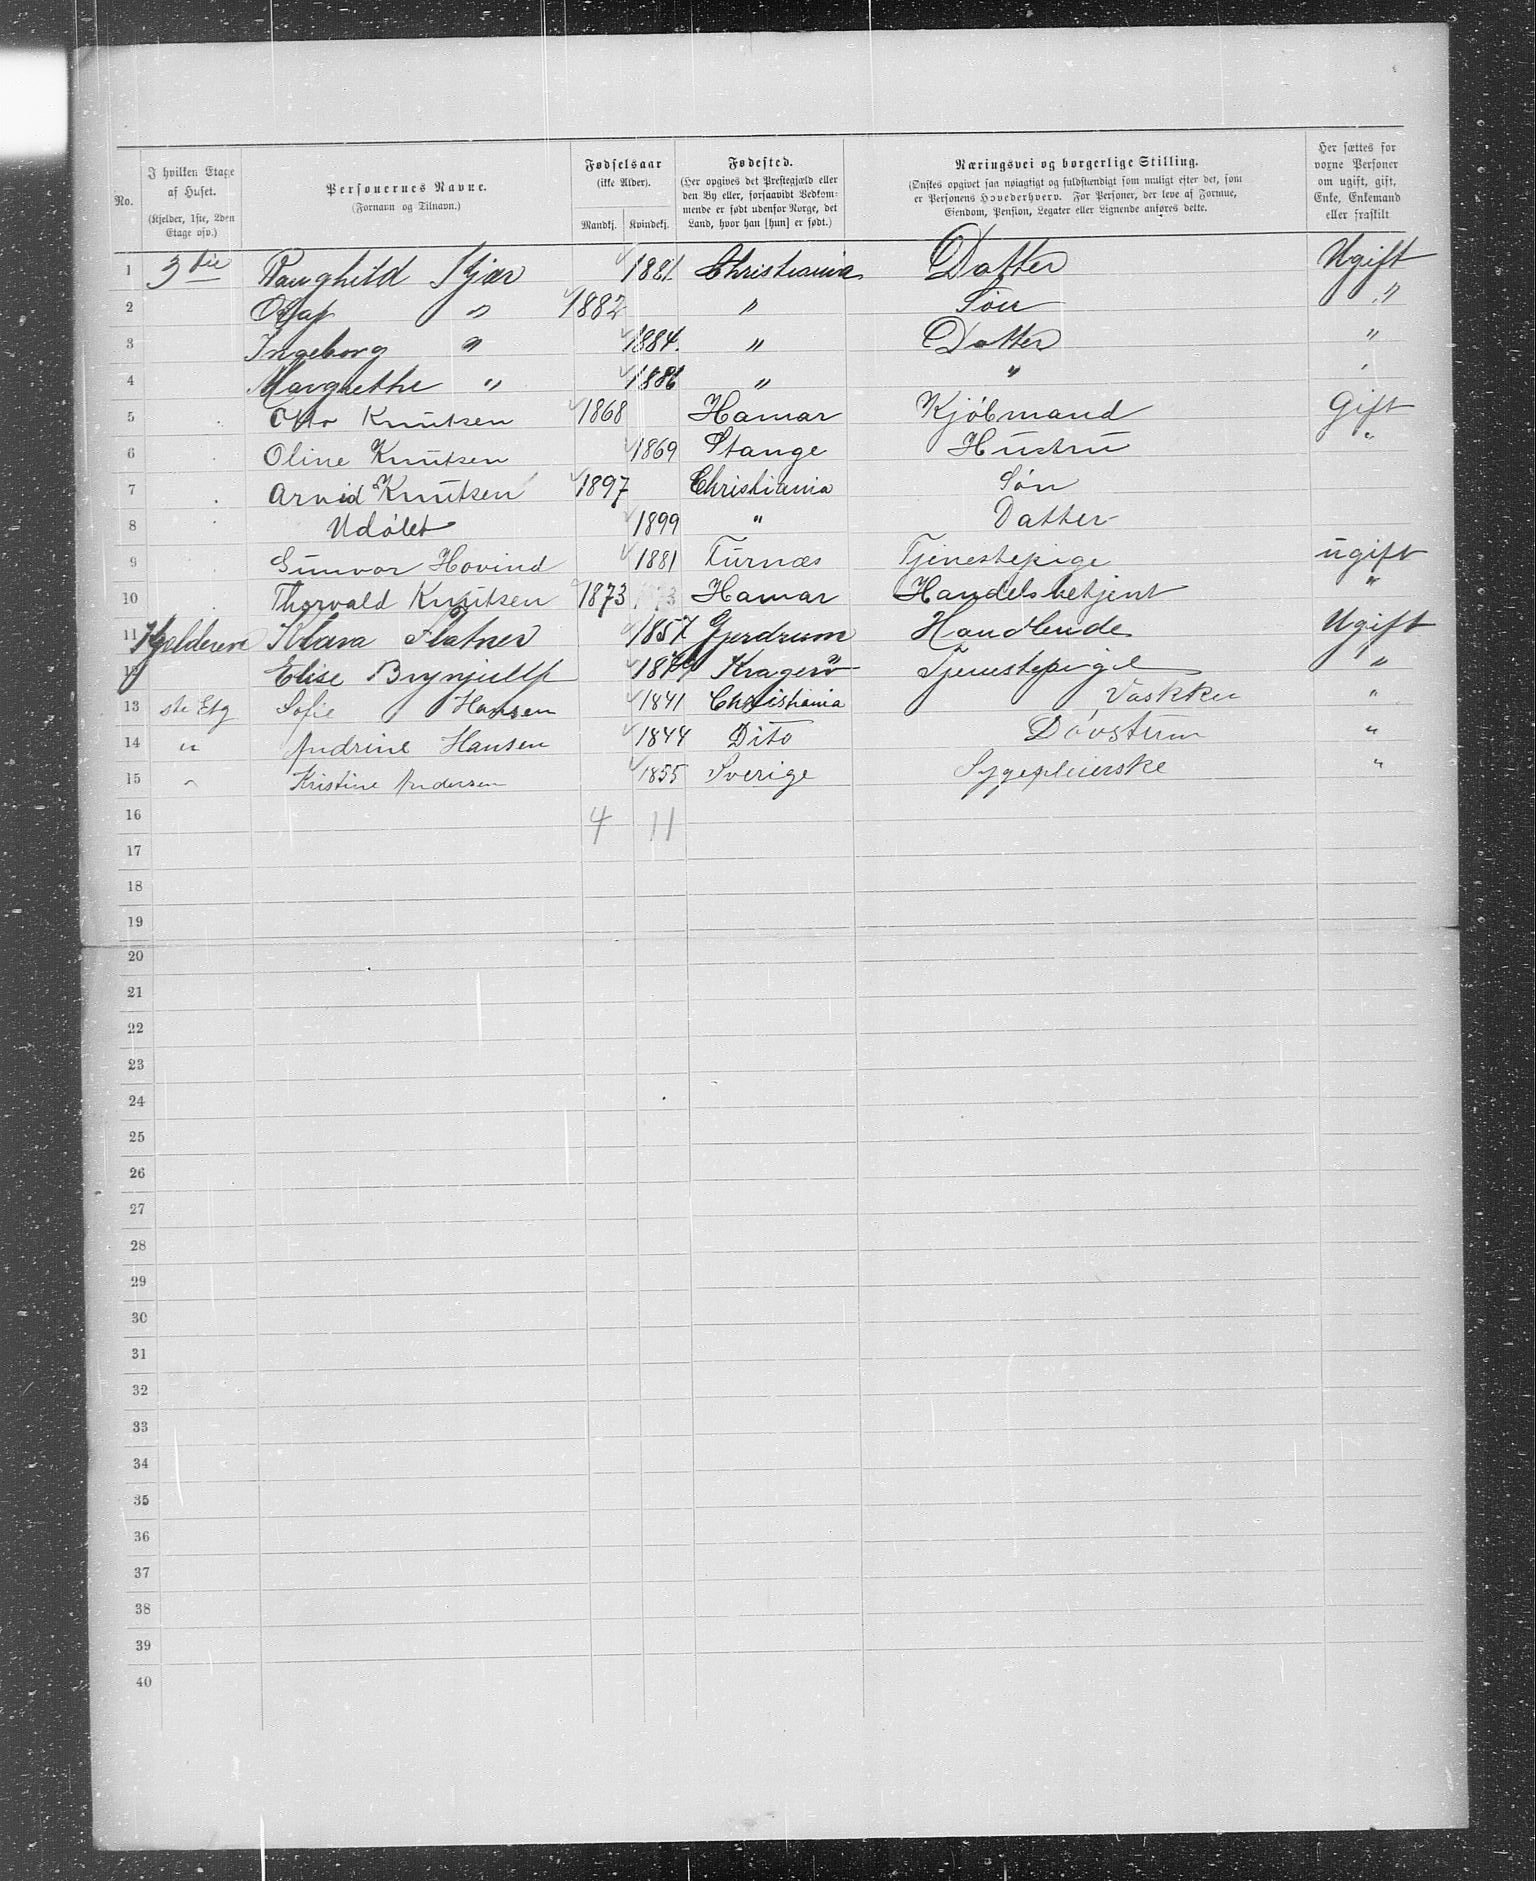 No. | I hvilken Etage af Huset. (Kjelder, 1ste, 2den Etage osv.) | Personernes Navne. (Fornavn og Tilnavn.) | Fødselsaar (ikke Alder). Mandkj. | Kvindekj. | Fødested. (Her opgives det Prestegjæld eller den By eller, forsaavidt Vedkommende er født udenfor Norge, det Land, hvor han [hun] er født.) | Næringsvei og borgerlige Stilling. (Ønskes opgivet saa nøiagtigt og fuldstændigt som muligt efter det, som er Personens Hovederhverv. For Personer, der leve af Formue, Eiendom, Pension, Legater eller Lignende anføres dette. | Her sættes for voxne Personer om ugift, gift, Enke, Enkemand eller fraskilt
1 3die Raughild Kjær 1881. Christiania Datter Ugift
2 Olaf " 1882 " Søn "
3 Ingeborg " 1884. " Datter "
4 Margrethe " 1886 " "
5 Otto Knutsen 1868 Hamar Kjøbmand Gift
6 Oline Knutsen 1869 Stange Hustru "
7 Arvid Knutsen 1897 Christiania Søn
8 Udøbt 1899 " Datter
9 Gunvor Hovind 1881 Furnæs Tjenestepige ugift
10 Thorvald Knutsen 1873 Hamar Handelsbetjent "
11 Kjælderen Klara 1857 Gjerdrum Handlende Ugift
12 Elise Brynjulf Kragerø Tjenestepige "
13 ste Etg Sofie Hansen 1841 Christiania Vaskker "
14 " Andrine Hansen 1844 Dito Døvstum "
15 " Kristine Andersen 1855 Sverige Sygepleierske "
16 4 11
17
18
19
20
21
22
23
24
25
26
27
28
29
30
31
32
33
34
35
36
37
38
39
40